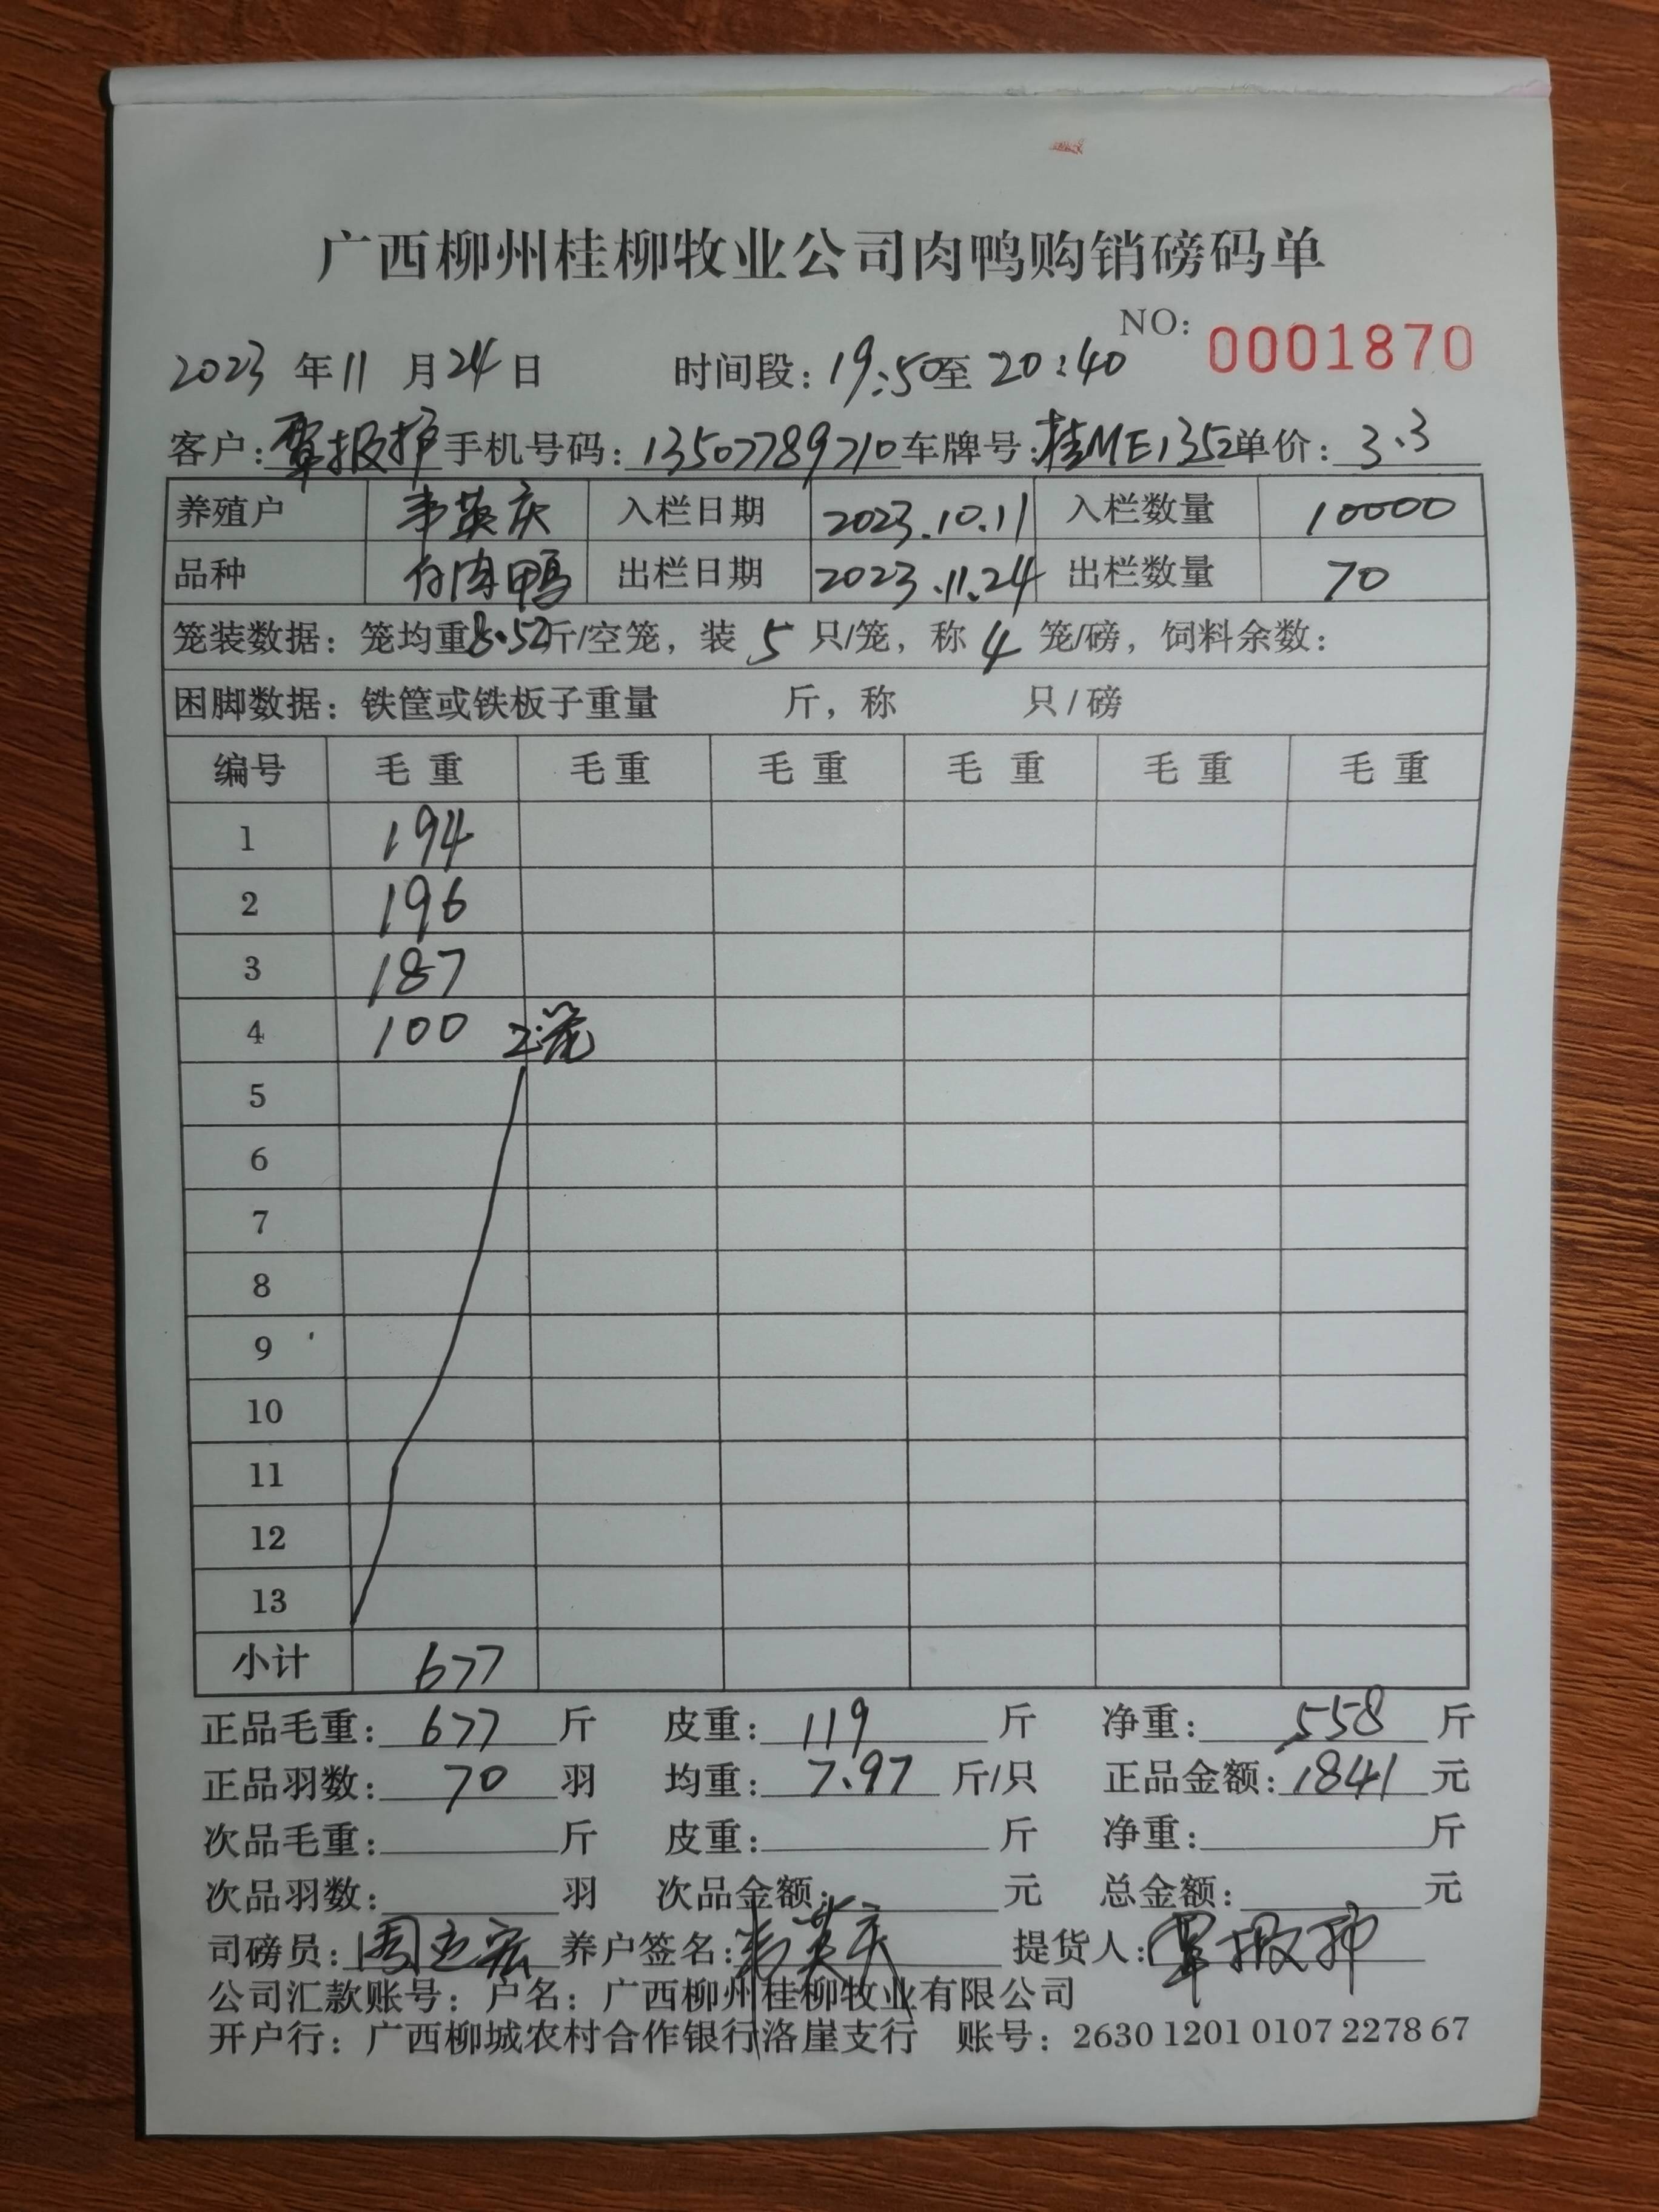 广西柳州桂柳牧业公司肉鸭购销磅码单
NO: 0001870
2023 年 11 月 24 日 时间段: 19:50至 20:40
客户: 覃报护 手机号码: 13507789710 车牌号: 桂ME1352 单价: 3.3
养殖户 韦英庆 入栏日期 2023.10.11 入栏数量 10000
品种 白肉鸭 出栏日期 2023.11.24 出栏数量 70
笼装数据: 笼均重8.52斤/空笼, 装 5 只/笼, 称 4 笼/磅, 饲料余数:
困脚数据: 铁筐或铁板子重量 斤, 称 只/磅
编号 毛重 毛重 毛重 毛重 毛重 毛重
1 194
2 196
3 187
4 100 2笼
5
6
7
8
9
10
11
12
13
小计 677
正品毛重: 677 斤 皮重: 119 斤 净重: 558 斤
正品羽数: 70 羽 均重: 7.97 斤/只 正品金额: 1841 元
次品毛重: 斤 皮重: 斤 净重: 斤
次品羽数: 羽 次品金额: 元 总金额: 元
司磅员: 周立宏 养户签名: 韦英庆 提货人: 覃报护
公司汇款账号: 户名: 广西柳州桂柳牧业有限公司
开户行: 广西柳城农村合作银行洛崖支行 账号: 2630 1201 0107 2278 67